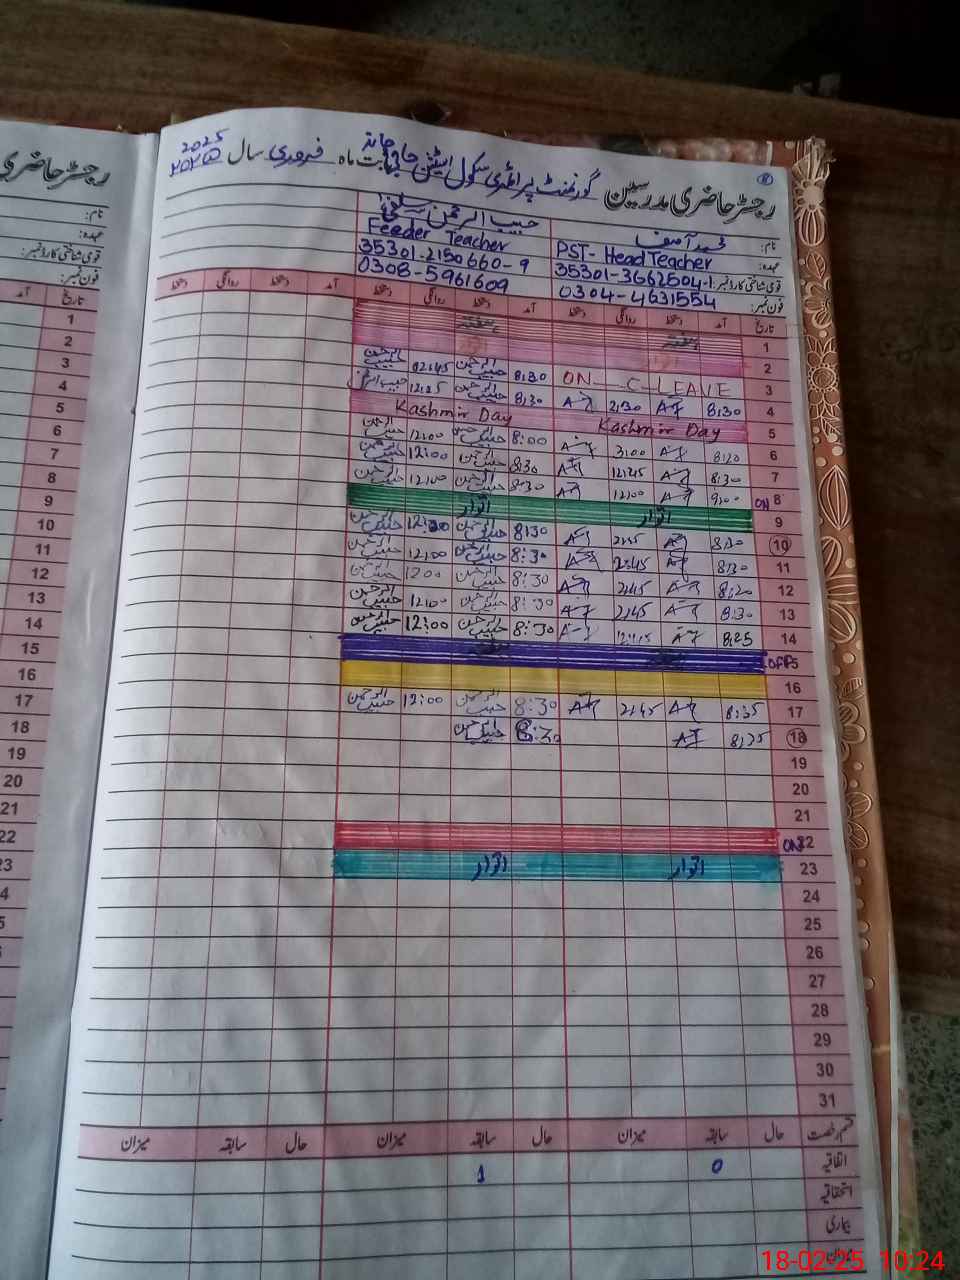 رجسٹر حاضری مدرسین گورنمنٹ پرائمری سکول اسٹیشن بابت ماہ فروری سال 2025 ۲۰۲۵
نام: محمد آصف حبیب الرحمن
عہدہ: PST- Head Teacher Feeder Teacher
قومی شناختی کارڈ نمبر: 35301-3662504-1 35301-2150660-9
فون نمبر: 0304-4631554 0308-5961609
تاریخ آمد دستخط روانگی دستخط آمد دستخط روانگی دستخط آمد دستخط روانگی دستخط
1 ہفتہ ہفتہ
2
3 ON C-LEAVE 8:30 حبیب الرحمن 02:45 حبیب الرحمن
4 8:30 2:30 8:30 حبیب الرحمن 12:25 حبیب الرحمن
5 Kashmir Day Kashmir Day
6 8:20 3:00 8:00 حبیب الرحمن 12:00 حبیب الرحمن
7 8:30 12:45 8:30 حبیب الرحمن 12:00 حبیب الرحمن
8 ON 9:00 12:00 8:30 حبیب الرحمن 12:00 حبیب الرحمن
9 اتوار اتوار
10 8:30 2:45 8:30 حبیب الرحمن 12:00 حبیب الرحمن
11 8:30 2:45 8:30 حبیب الرحمن 12:00 حبیب الرحمن
12 8:20 2:45 8:30 حبیب الرحمن 12:00 حبیب الرحمن
13 8:30 2:45 8:30 حبیب الرحمن 12:00 حبیب الرحمن
14 8:25 8:30 حبیب الرحمن 12:00 حبیب الرحمن
15 OFF ہفتہ ہفتہ
16
17 8:35 2:45 8:30 حبیب الرحمن 12:00 حبیب الرحمن
18 8:25 8:30 حبیب الرحمن
19
20
21
22 ON
23 اتوار اتوار
24
25
26
27
28
29
30
31
قسم رخصت حال سابقہ میزان حال سابقہ میزان حال سابقہ میزان
اتفاقیہ 0 1
استحقاقیہ
بیماری
میزان
رجسٹر حاضری
نام:
عہدہ:
قومی شناختی کارڈ نمبر:
فون نمبر:
تاریخ آمد
1
2
3
4
5
6
7
8
9
10
11
12
13
14
15
16
17
18
19
20
21
22
23
18-02-25 10:24